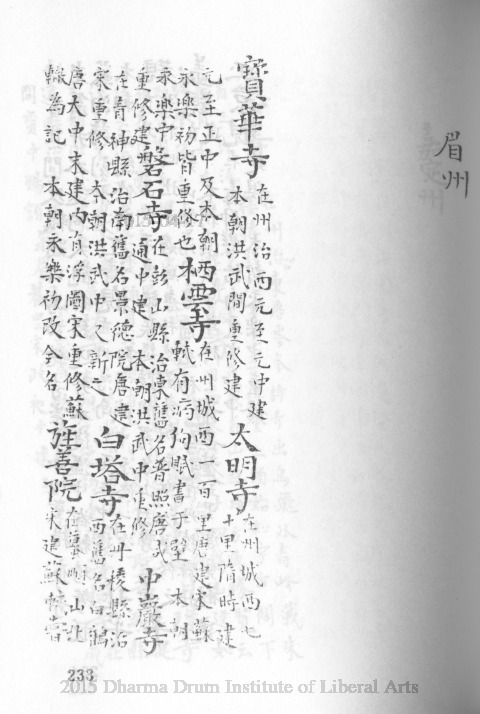 眉州
寶華寺 在州治西元至元中建本朝洪武間重修建 太明寺 在州城西七十里隋時建
元至正中及本朝永樂初皆重修也 栖雲寺 在州城西一百里唐建宋蘇軾有病狗賦書于壁 本朝
永樂中重修建 磐石寺 在彭山縣治東舊名普照唐咸通中建本朝洪武中重修 中巖寺
在青神縣治南舊名景德院唐建宋重修本朝洪武中又新之 白塔寺 在丹稜縣治西舊名白鶴
唐大中末建内有浮圖宋重修蘇轍為記 本朝永樂初改今名 旌善院 在蟇頤山北宋建蘇軾嘗
233
2015 Dharma Drum Institute of Liberal Arts